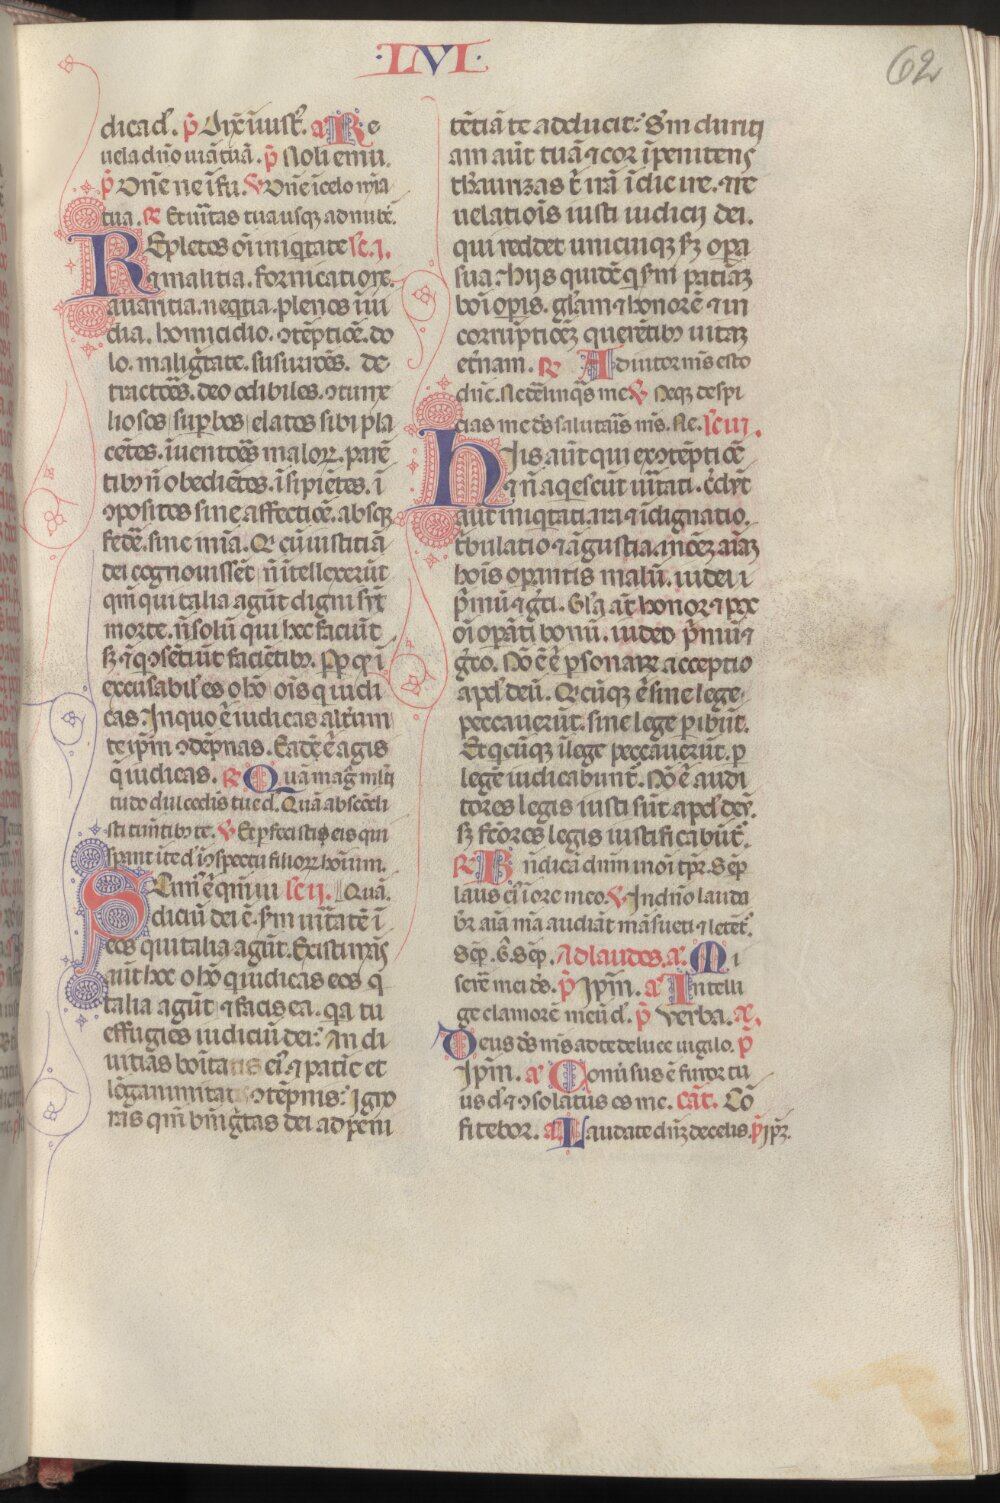 ·LVI·
62
dica d̄. p̄ Dix̄ iniust̄. a Re
uela dn̄o uiā tuā. p̄ Noli emu.
p̄ Dn̄e ne ī fu. V Dn̄e ī celo mīa
tua. R Et uītas tua usqꝫ ad nubē.
REpletos oī iniq̄tate le. i.
⁊ malitia. fornicatione.
auaritia. neq̄tia. plenos īui
dia. homicidio. ↄtēptiōē. do
lo. maliḡtate. susurrōēs. de
tractōēs. deo odibiles. ↄtume
liosos sup̄bos elatos sibi pla
cētes. īuentōēs malоꝝ. parē
tibꝰ n̄ obediētes. īsipiētes. ī
ↄpositos sine affectiōē. absqꝫ
fedē. sine mīa. Q̄ cū iustitiā
dei cognouissēt n̄ ītellexerūt
qm̄ qui talia agūt digni sūt
morte. n̄ solū qui hec faciūt
sꝫ ⁊ q̄ ↄsētiūt faciētibꝰ. P̄p q̄ ī
excusabil̓ es o hō oīs q̄ iudi
cas. In quo ē iudicas altūm
te ip̄m ↄdēpnas. Eadē ē agis
q̄ iudicas. R Quā mag̃ ml̄ti
tudo dulcedīs tue d̄. Quā abscōdi
sti timētibꝰ te. V Et ꝑfecisti eis qui
spant ī te d̄ ī ↄspectu filioꝝ hoīum.
Scim̓ ē qm̄ iu le ij. Quā.
diciū dei ē. sm̄ uītatē ī
eos qui talia agūt. Existim̄s
aūt hec o hō q̄ iudicas eos q̄
talia agūt ⁊ facis ea. q̄a tu
effugies iudiciū dei? An di
uitias boītatis ei̓ ⁊ patīe et
lōganimitatis ↄtēpnis? Igno
ras qm̄ bn̄ig̃tas dei ad peni
tētiā te adducit? Sm̄ duriti
am aūt tuā ⁊ cor īpenitens
thaurizas t̄ irā ī die ire. ⁊ re
uelatiois iusti iudicij dei.
qui reddet unicuiqꝫ sꝫ opa
sua. Hijs quidē q̄ sm̄ patiāꝫ
boī opis. gl̄am ⁊ honorē ⁊ in
corruptiōēꝫ querētibꝰ uitaꝫ
et̄nam. R Adiutor m̄s esto
dn̄e. Ne derelinq̄s me V Neqꝫ despi
cias me ds̄ salutaīs m̄s. Ne. le iij.
His aūt qui ex ↄtēptiōē
⁊ n̄ aq̄escūt uītati. c̄dūt
aūt iniq̄tati. ira ⁊ īdignatio.
t̄bulatio ⁊ āgustia. in oēꝫ aīaꝫ
hoīs opantis malū. iudei
p̄mū ⁊ g̃ci. Gl̄a aūt honor ⁊ pax
oī opāti bonū. iudeo p̄mū ⁊
g̃co. Nō ē ē psonaꝝ acceptio
apd̓ deū. Q̄cūqꝫ ē sine lege
peccauerūt. sine lege pibūt.
Et q̄cūqꝫ ī lege peccauerūt. p
legē iudicabunt̄. Nō ē audi
tores legis iusti sūt apd̓ deū.
sꝫ fc̄ores legis iustificabūt̄.
R Bn̄dicā dnm̄ ī oī tp̄r. Sēp
laus ei̓ ī ore meo. V In dn̄o lauda
br̄ aīa mīa audiāt māsueti ⁊ letēt̄.
Sēp. G. Sēp. Ad laudes. a. Mi
serē mei ds̄. p̄ Ip̄m. a Intelli
ge clamorē meū d̄. p̄ Verba. a.
Deus ds̄ m̄s ad te de luce uigilo. p̄
Ip̄m. a Conūsus ē furor tu
us d̄ ⁊ ↄsolatus es me. cāt. Cō
fitebor. a Laudate dn̄ꝫ de celis. p̄ ip̄ꝫ.